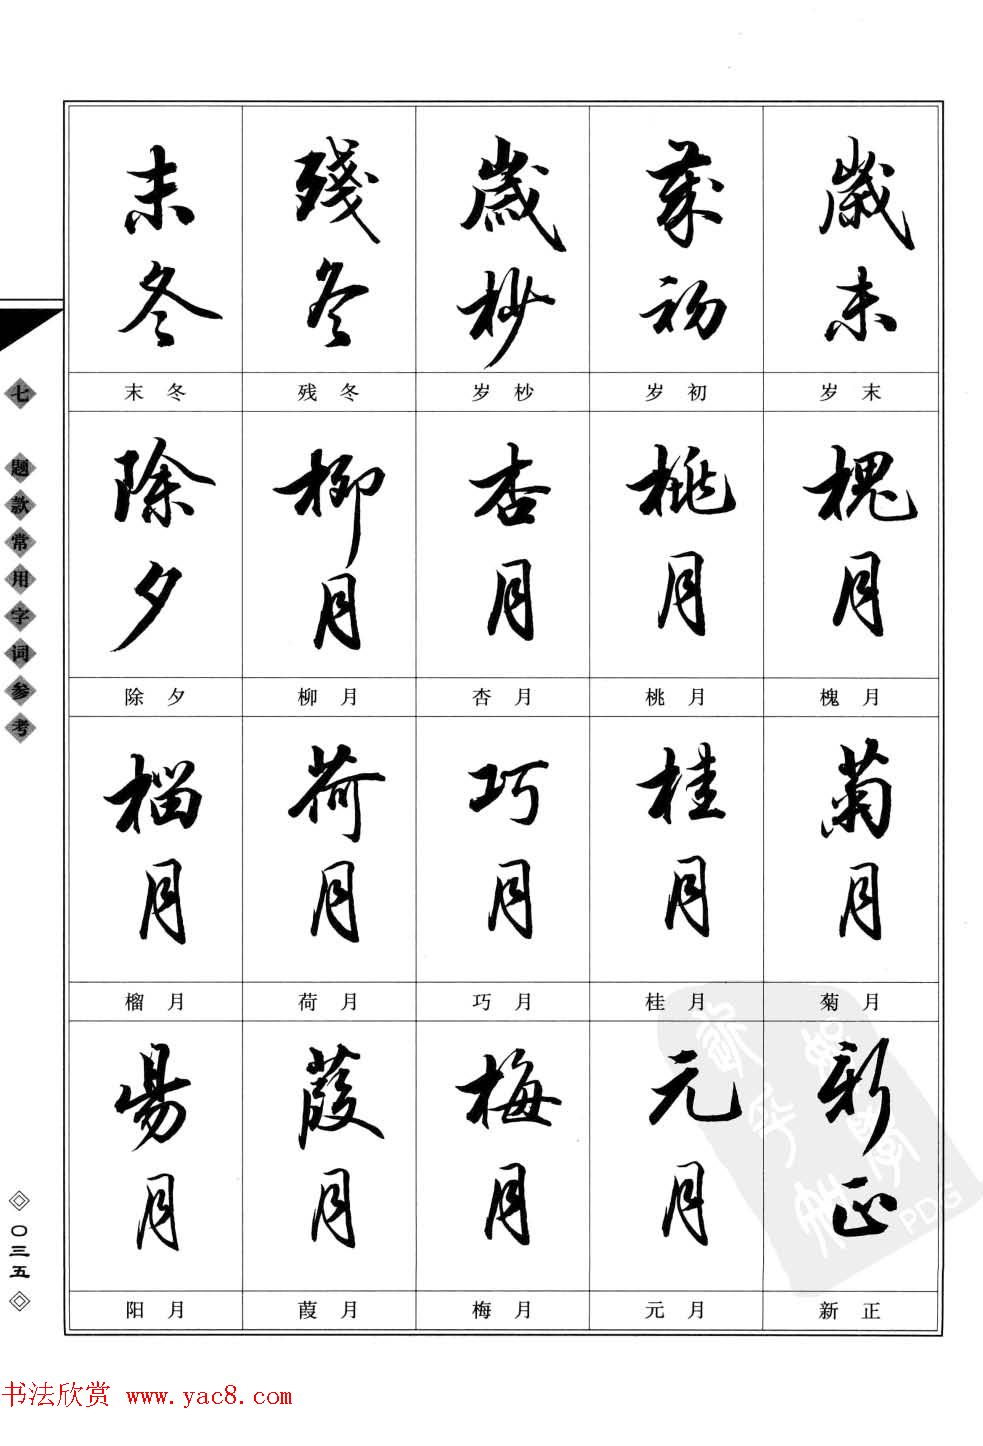 七 题款常用字词参考
末冬 残冬 岁杪 岁初 岁末
末冬 残冬 岁杪 岁初 岁末
除夕 柳月 杏月 桃月 槐月
除夕 柳月 杏月 桃月 槐月
榴月 荷月 巧月 桂月 菊月
榴月 荷月 巧月 桂月 菊月
昜月 葭月 梅月 元月 新正
阳月 葭月 梅月 元月 新正
〇三五
PDG
书法欣赏 www.yac8.com